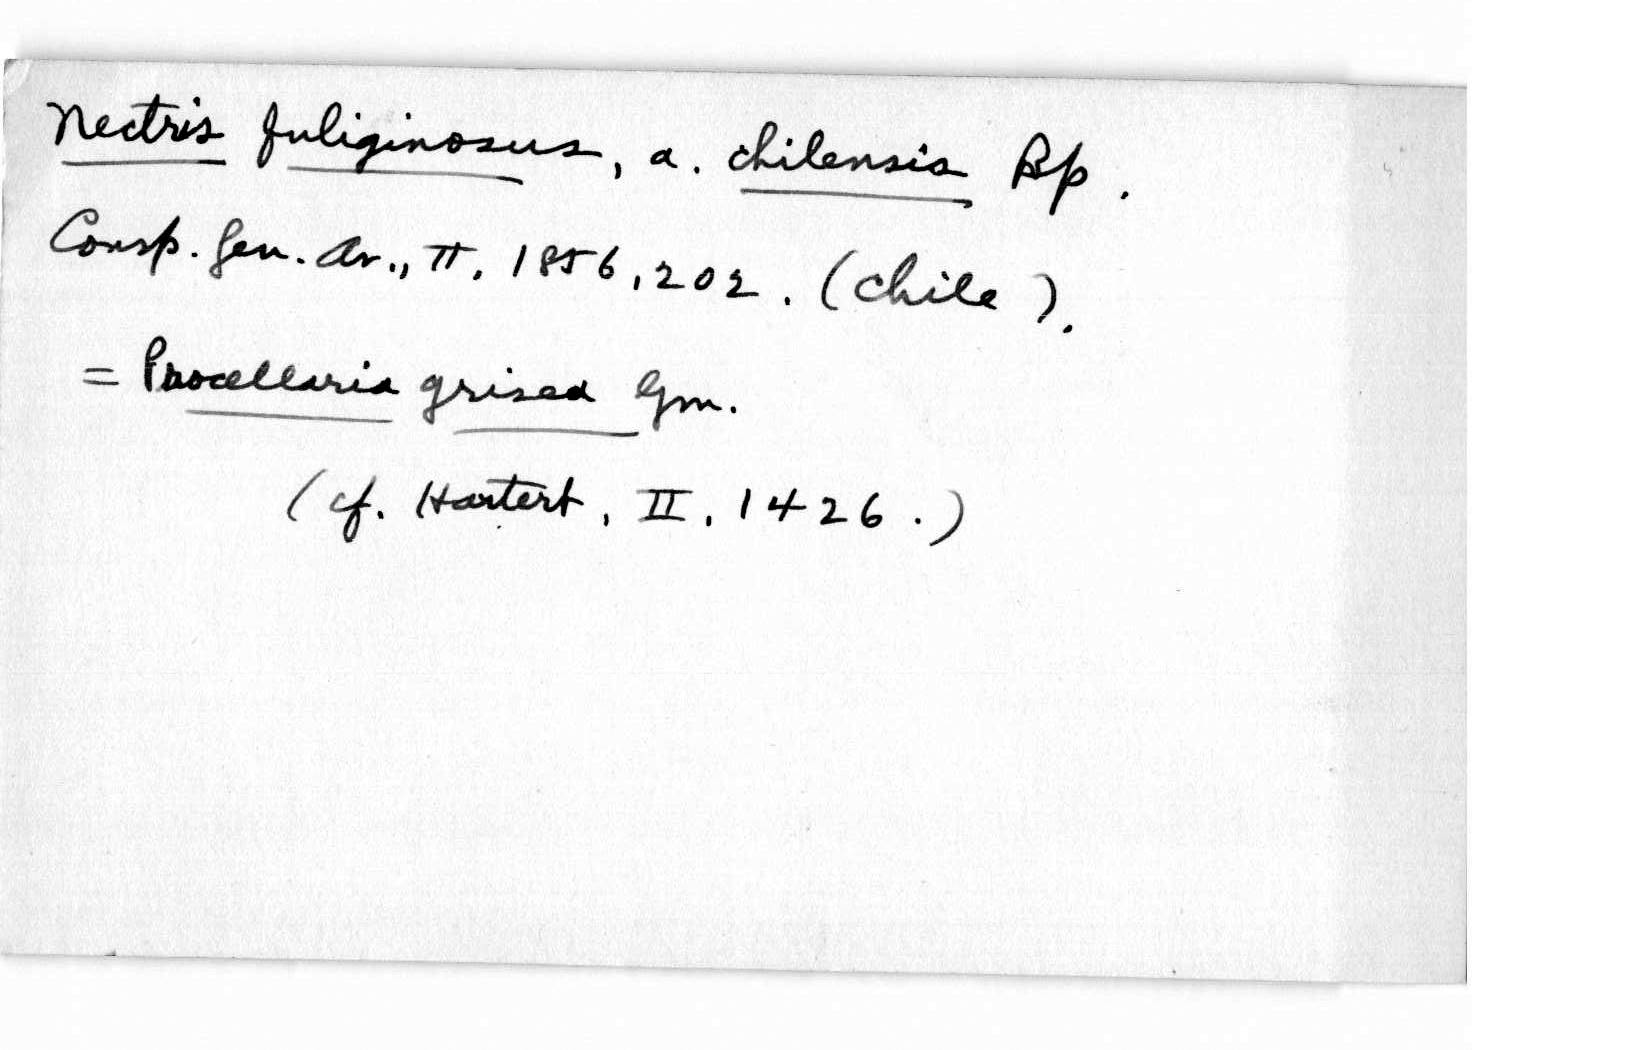 Nectris fuliginosus, a. chilensis Bp.
Consp. Gen. Av., II, 1856, 202. (Chile).
= Procellaria grisea Gm.
(cf. Hartert, II, 1426.)